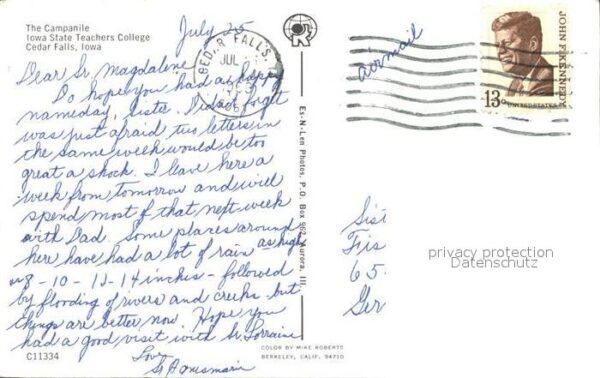 The Campanile
Iowa State Teachers College
Cedar Falls, Iowa
July 25
Dear Sr. Magdalene,
Do hope you had a happy
nameday, Sister. Didn't forget
was just afraid two letters in
the same week would be too
great a shock. I leave here a
week from tomorrow and will
spend most of that next week
with Dad. Some places around
here have had a lot of rain as high
as 8 - 10 - 12 - 14 inches - followed
by flooding of rivers and creeks but
things are better now. Hope you
had a good visit with Sr. Lorraine
Love,
Sr. Annemarie
C11334
Es-N-Len Photos, P.O. Box 662 Aurora, Ill.
COLOR BY MIKE ROBERTS
BERKELEY, CALIF. 94710
CEDAR FALLS,
JUL
airmail
JOHN F. KENNEDY
13c UNITED STATES
Sist
Fis
65
Ger
privacy protection
Datenschutz